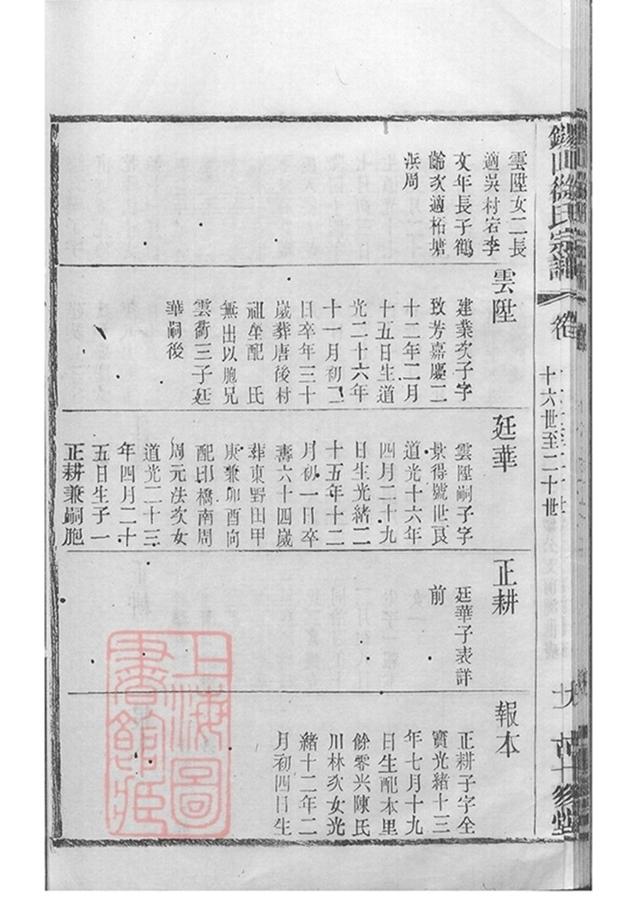 錫山徐氏宗譜
卷
十六世至二十世
雲陞女二長
適吳村宕李
文年長子鶴
齡次適柘塘
浜周
雲陞
建業次子字
致芳嘉慶二
十二年二月
十五日生道
光二十六年
十一月初二
日卒年三十
歲葬唐後村
祖塋配 氏
無出以胞兄
雲衢三子廷
華嗣後
廷華
雲陞嗣子字
景得號世良
道光十六年
四月二十九
日生光緒二
十五年十二
月初一日卒
壽六十四歲
葬東野田甲
庚兼卯酉向
配邱橋南周
周元法次女
道光二十三
年四月二十
五日生子一
正耕兼嗣胞
正耕
廷華子表詳
前
報本
正耕子字全
寶光緒十三
年七月十九
日生配本里
餘零兴陳氏
川林次女光
緒十二年二
月初四日生
上海圖
書館藏